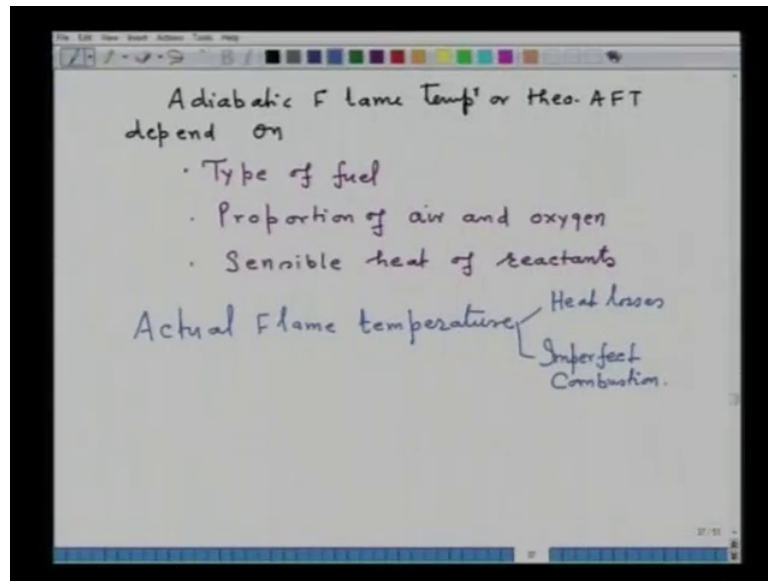 File Edit View Insert Actions Tools Help
Adiabatic Flame Temp^r or theo. AFT
depend on
· Type of fuel
· Proportion of air and oxygen
· Sensible heat of reactants
Actual Flame temperature
Heat losses
Imperfect
Combustion.